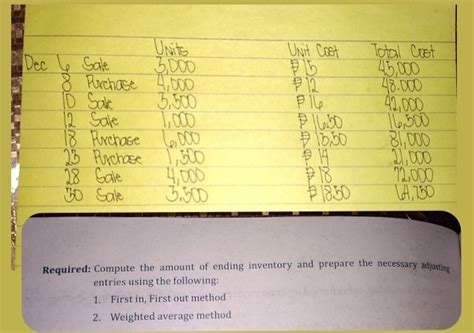 Units Unit Cost Total Cost
Dec 6 Sale 3,000 ₱15 45,000
8 Purchase 4,000 ₱12 48.000
10 Sale 3,500 ₱16 42,000
12 Sale 1,000 ₱16.50 16,500
18 Purchase 6,000 ₱13.50 81,000
23 Purchase 1,500 ₱14 21,000
28 Sale 4,000 ₱18 72,000
30 Sale 3.500 ₱18.50 64,750
Required: Compute the amount of ending inventory and prepare the necessary adjusting
entries using the following:
1. First in, First out method
2. Weighted average method